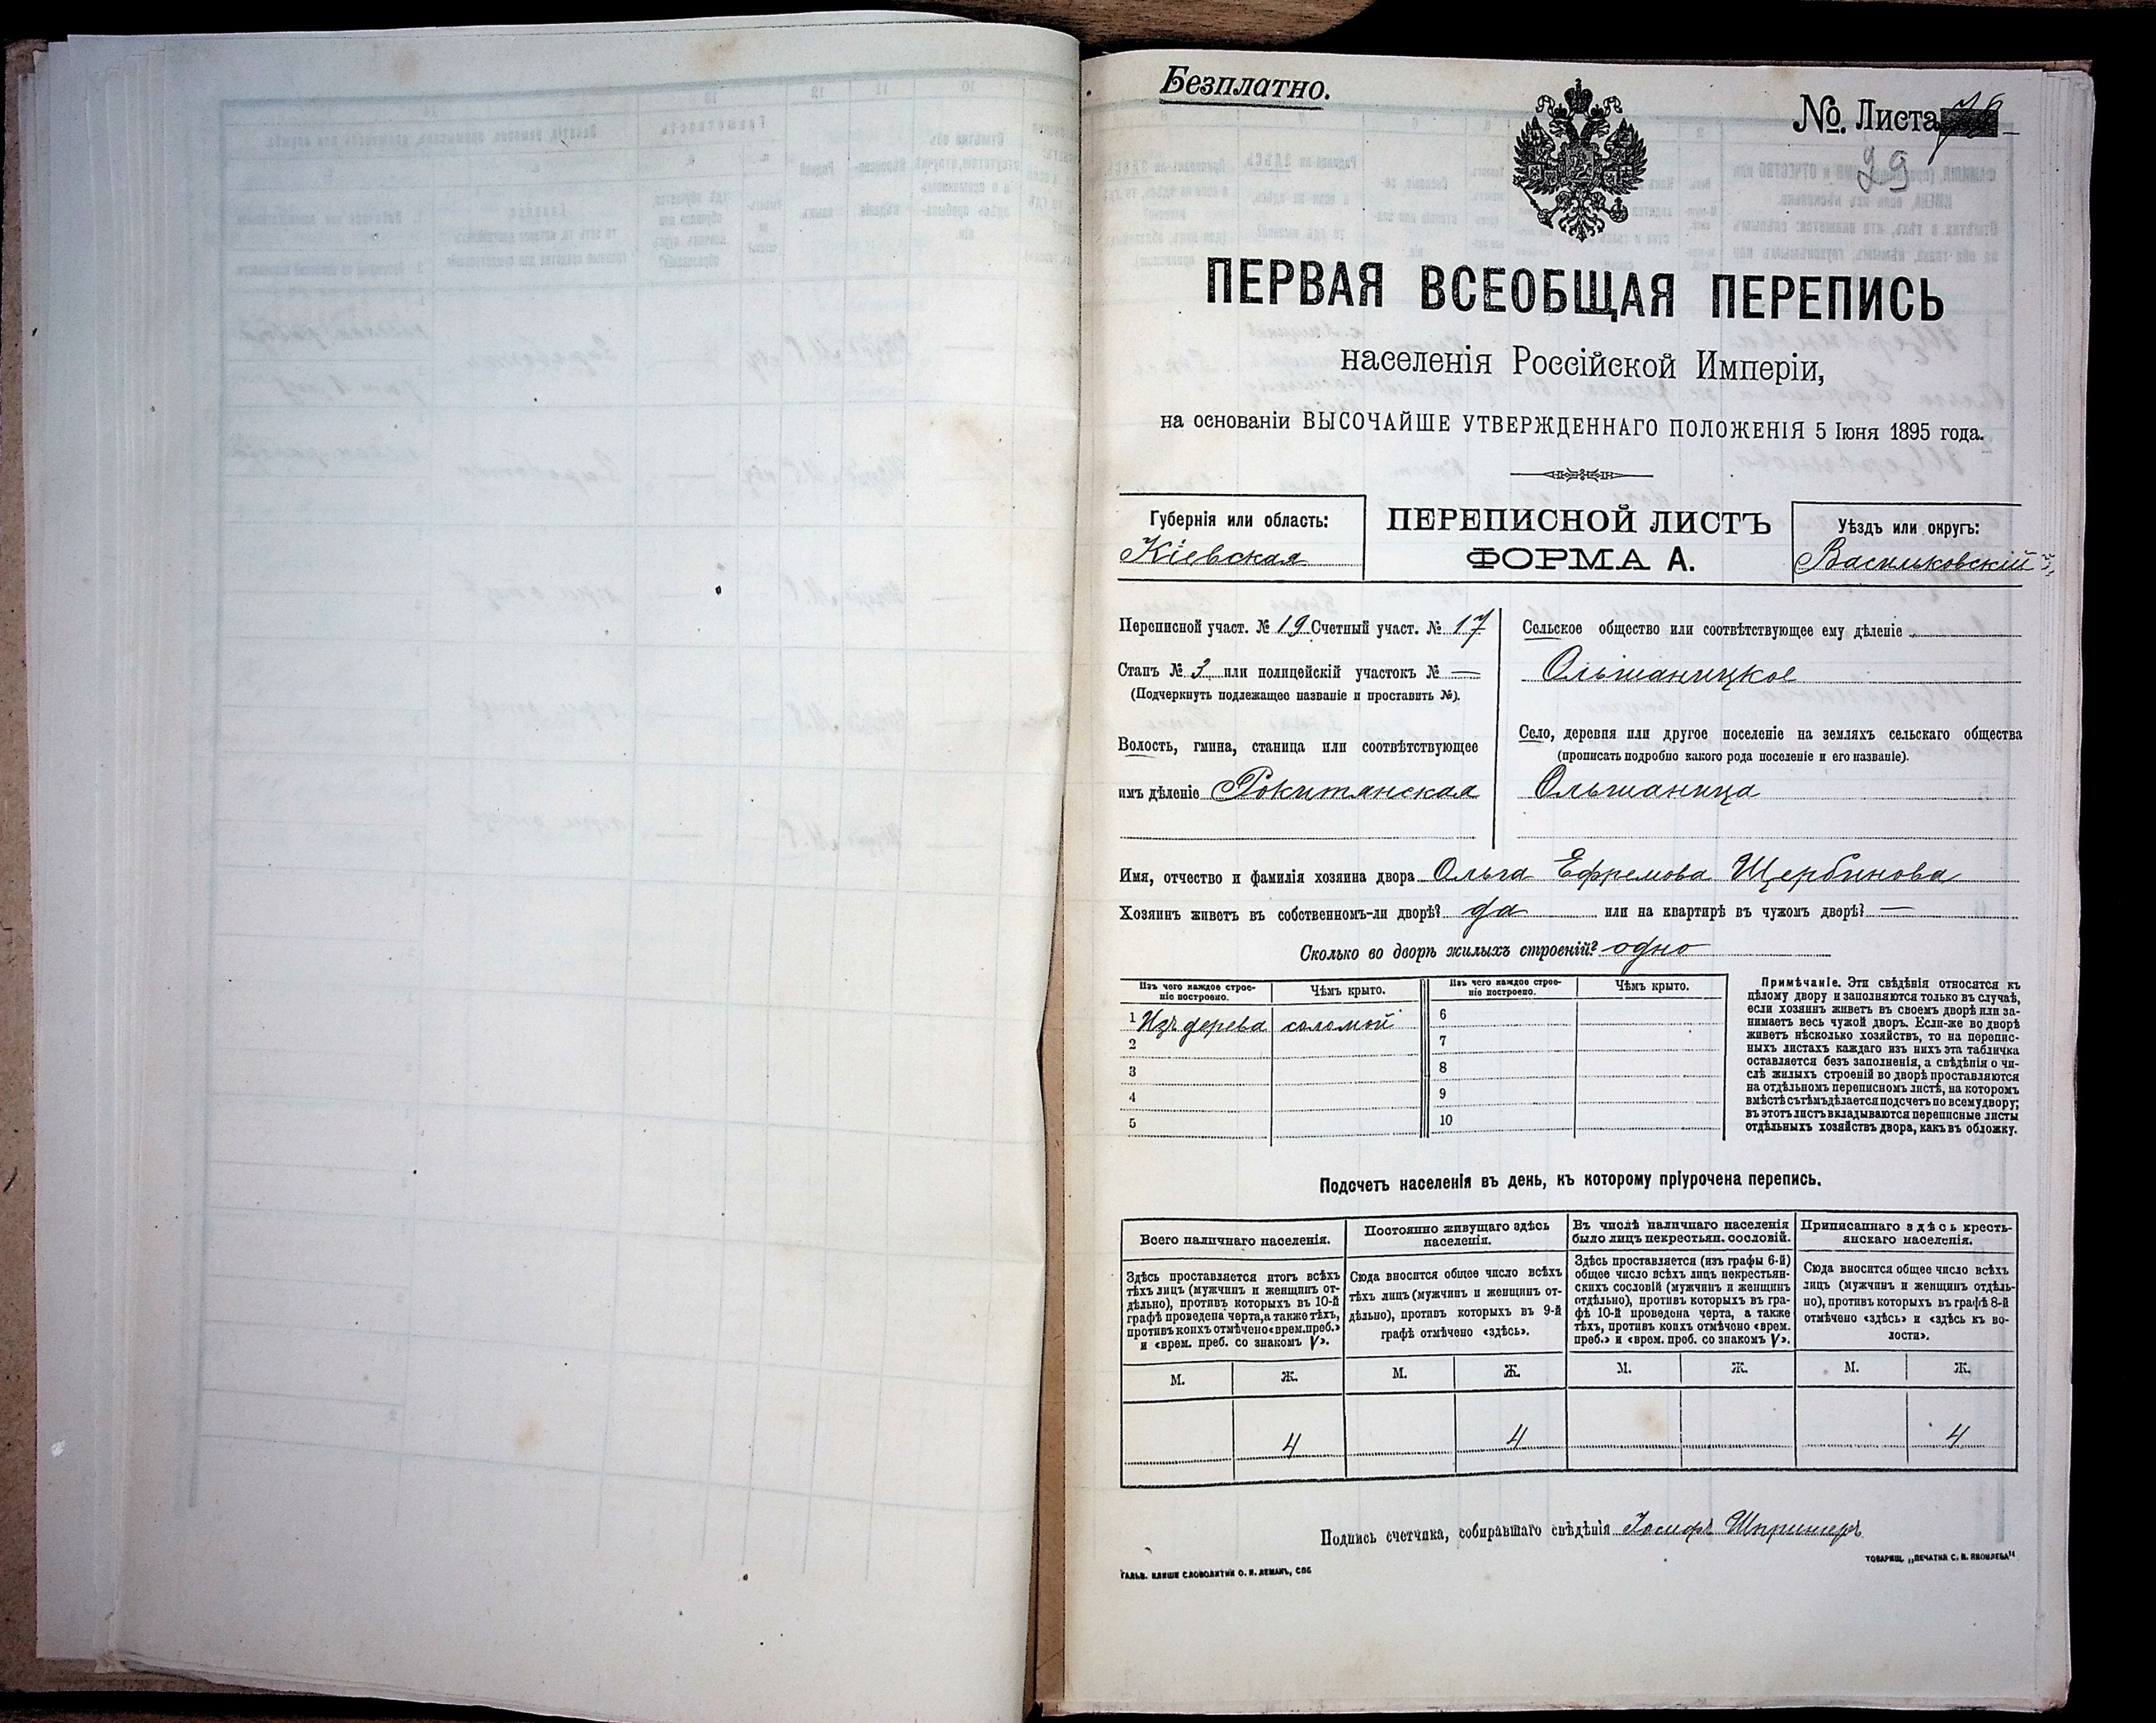 Безплатно.
№ Листа
29
ПЕРВАЯ ВСЕОБЩАЯ ПЕРЕПИСЬ
населенія Россійской Имперіи,
на основаніи ВЫСОЧАЙШЕ УТВЕРЖДЕННАГО ПОЛОЖЕНІЯ 5 Іюня 1895 года.
Губернія или область:
Кіевская
ПЕРЕПИСНОЙ ЛИСТЪ
ФОРМА А.
Уѣздъ или округъ:
Васильковскій
Переписной участ. № 19 Счетный участ. № 17
Станъ № 3 или полицейскій участокъ № —
(Подчеркнуть подлежащее названіе и проставить №).
Волость, гмина, станица или соотвѣтствующее
имъ дѣленіе Рокитянская
Сельское общество или соотвѣтствующее ему дѣленіе
Ольшаницкое
Село, деревня или другое поселеніе на земляхъ сельскаго общества
(прописать подробно какого рода поселеніе и его названіе).
Ольшаница
Имя, отчество и фамилія хозяина двора Ольга Ефремова Щербинова
Хозяинъ живетъ въ собственномъ-ли дворѣ? да или на квартирѣ въ чужомъ дворѣ? —
Сколько во дворѣ жилыхъ строеній? одно
Изъ чего каждое строе-
ніе построено.
Чѣмъ крыто.
Изъ чего каждое строе-
ніе построено.
Чѣмъ крыто.
1 Изъ дерева соломой 6
2 7
3 8
4 9
5 10
Примѣчаніе. Эти свѣдѣнія относятся къ
цѣлому двору и заполняются только въ случаѣ,
если хозяинъ живетъ въ своемъ дворѣ или за-
нимаетъ весь чужой дворъ. Если-же во дворѣ
живетъ нѣсколько хозяйствъ, то на перепис-
ныхъ листахъ каждаго изъ нихъ эта табличка
оставляется безъ заполненія, а свѣдѣнія о чи-
слѣ жилыхъ строеній во дворѣ проставляются
на отдѣльномъ переписномъ листѣ, на которомъ
вмѣстѣ съ тѣмъ дѣлается подсчетъ по всему двору;
въ этотъ листъ вкладываются переписные листы
отдѣльныхъ хозяйствъ двора, какъ въ обложку.
Подсчетъ населенія въ день, къ которому пріурочена перепись.
Всего наличнаго населенія.
Здѣсь проставляется итогъ всѣхъ
тѣхъ лицъ (мужчинъ и женщинъ от-
дѣльно), противъ которыхъ въ 10-й
графѣ проведена черта, а также тѣхъ,
противъ коихъ отмѣчено «врем. преб.»
и «врем. преб. со знакомъ V».
М. Ж.
4
Постоянно живущаго здѣсь
населенія.
Сюда вносится общее число всѣхъ
тѣхъ лицъ (мужчинъ и женщинъ от-
дѣльно), противъ которыхъ въ 9-й
графѣ отмѣчено «здѣсь».
М. Ж.
4
Въ числѣ наличнаго населенія
было лицъ некрестьян. сословій.
Здѣсь проставляется (изъ графы 6-й)
общее число всѣхъ лицъ некрестьян-
скихъ сословій (мужчинъ и женщинъ
отдѣльно), противъ которыхъ въ гра-
фѣ 10-й проведена черта, а также
тѣхъ, противъ коихъ отмѣчено «врем.
преб.» и «врем. преб. со знакомъ V».
М. Ж.
Приписаннаго здѣсь кресть-
янскаго населенія.
Сюда вносится общее число всѣхъ
лицъ (мужчинъ и женщинъ отдѣль-
но), противъ которыхъ въ графѣ 8-й
отмѣчено «здѣсь» и «здѣсь къ во-
лости».
М. Ж.
4
Подпись счетчика, собиравшаго свѣдѣнія Іосифъ
ГАЛЬВ. КЛИШЕ СЛОВОЛИТНИ О. И. ЛЕМАНЪ, СПБ
ТОВАРИЩ. „ПЕЧАТНЯ С. П. ЯКОВЛЕВА“